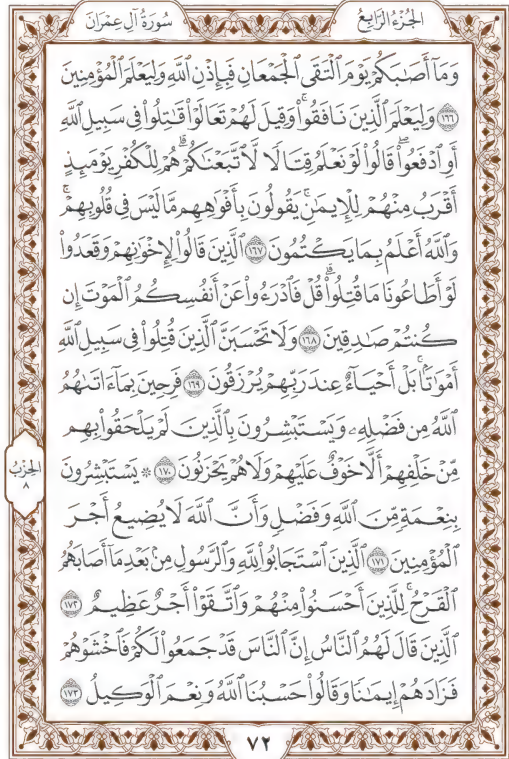 سُورَةُ آلِ عِمْرَانَ
الجُزْءُ الرَّابِعُ
وَمَآ أَصَٰبَكُمْ يَوْمَ ٱلْتَقَى ٱلْجَمْعَانِ فَبِإِذْنِ ٱللَّهِ وَلِيَعْلَمَ ٱلْمُؤْمِنِينَ
١٦٦ وَلِيَعْلَمَ ٱلَّذِينَ نَافَقُوا۟ۚ وَقِيلَ لَهُمْ تَعَالَوْا۟ قَٰتِلُوا۟ فِى سَبِيلِ ٱللَّهِ
أَوِ ٱدْفَعُوا۟ۖ قَالُوا۟ لَوْ نَعْلَمُ قِتَالًا لَّٱتَّبَعْنَٰكُمْۗ هُمْ لِلْكُفْرِ يَوْمَئِذٍ
أَقْرَبُ مِنْهُمْ لِلْإِيمَٰنِۚ يَقُولُونَ بِأَفْوَٰهِهِم مَّا لَيْسَ فِى قُلُوبِهِمْۚ
وَٱللَّهُ أَعْلَمُ بِمَا يَكْتُمُونَ ١٦٧ ٱلَّذِينَ قَالُوا۟ لِإِخْوَٰنِهِمْ وَقَعَدُوا۟
لَوْ أَطَاعُونَا مَا قُتِلُوا۟ۗ قُلْ فَٱدْرَءُوا۟ عَنْ أَنفُسِكُمُ ٱلْمَوْتَ إِن
كُنتُمْ صَٰدِقِينَ ١٦٨ وَلَا تَحْسَبَنَّ ٱلَّذِينَ قُتِلُوا۟ فِى سَبِيلِ ٱللَّهِ
أَمْوَٰتًۢاۚ بَلْ أَحْيَآءٌ عِندَ رَبِّهِمْ يُرْزَقُونَ ١٦٩ فَرِحِينَ بِمَآ ءَاتَىٰهُمُ
ٱللَّهُ مِن فَضْلِهِۦ وَيَسْتَبْشِرُونَ بِٱلَّذِينَ لَمْ يَلْحَقُوا۟ بِهِم
مِّنْ خَلْفِهِمْ أَلَّا خَوْفٌ عَلَيْهِمْ وَلَا هُمْ يَحْزَنُونَ ١٧٠ ۞ يَسْتَبْشِرُونَ
بِنِعْمَةٍ مِّنَ ٱللَّهِ وَفَضْلٍ وَأَنَّ ٱللَّهَ لَا يُضِيعُ أَجْرَ
ٱلْمُؤْمِنِينَ ١٧١ ٱلَّذِينَ ٱسْتَجَابُوا۟ لِلَّهِ وَٱلرَّسُولِ مِنۢ بَعْدِ مَآ أَصَابَهُمُ
ٱلْقَرْحُۚ لِلَّذِينَ أَحْسَنُوا۟ مِنْهُمْ وَٱتَّقَوْا۟ أَجْرٌ عَظِيمٌ ١٧٢
ٱلَّذِينَ قَالَ لَهُمُ ٱلنَّاسُ إِنَّ ٱلنَّاسَ قَدْ جَمَعُوا۟ لَكُمْ فَٱخْشَوْهُمْ
فَزَادَهُمْ إِيمَٰنًا وَقَالُوا۟ حَسْبُنَا ٱللَّهُ وَنِعْمَ ٱلْوَكِيلُ ١٧٣
الحِزْبُ
٨
٧٢